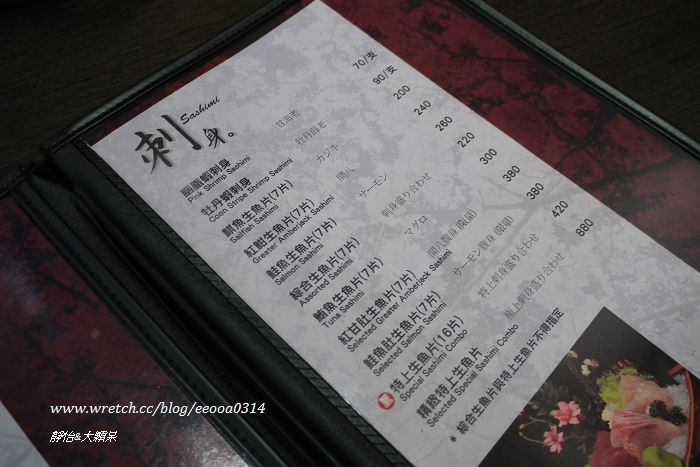 刺身。
Sashimi
胭脂蝦刺身 甘海老 70/支
Pink Shrimp Sashimi
牡丹蝦刺身 牡丹海老 90/支
Coon Stripe Shrimp Sashimi
旗魚生魚片(7片) カジキ 200
Sailfish Sashimi
紅魽生魚片(7片) 間八 240
Greater Amberjack Sashimi
鮭魚生魚片(7片) サーモン 260
Salmon Sashimi
綜合生魚片(7片) 刺身盛り合わせ 220
Assorted Sashimi
鮪魚生魚片(7片) マグロ 300
Tuna Sashimi
紅甘肚生魚片(7片) 間八腹身(限量) 380
Selected Greater Amberjack Sashimi
鮭魚肚生魚片(7片) サーモン腹身(限量) 380
Selected Salmon Sashimi
特上生魚片(16片) 特上刺身盛り合わせ 420
Special Sashimi Combo
精緻特上生魚片 極上刺身盛り合わせ 880
Selected Special Sashimi Combo
* 綜合生魚片與特上生魚片不得指定
www.wretch.cc/blog/eeooa0314
靜怡&大顆呆